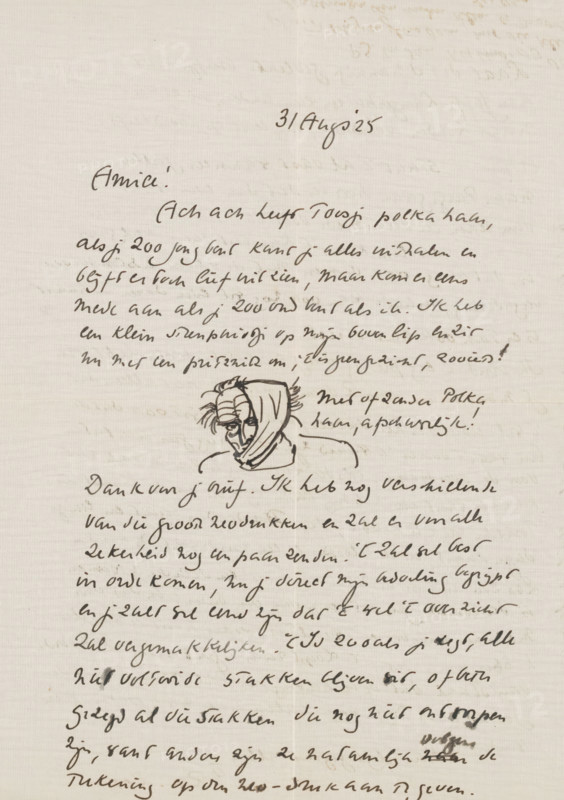 31 Aug '25
Amice!
Ach ach heeft Toosje polka haar,
als je 200 jong bent kunt je alles uithalen en
blijft er toch lief uit zien, maar kom er eens
mede aan als je 200 oud bent als ik. Ik heb
een klein steenpuistje op mijn bovenlip en zit
nu met een om, 't is geen gezicht, zooiets!
Met of zonder Polka
haar, afschuwelijk!
Dank voor je brief. Ik heb nog verschillende
van die groote neodrukken en zal er voor alle
zekerheid nog een paar zenden. 't Zal wel best
in orde komen, nu je direct mijn bedoeling begrijpt
en je zult wel eens zijn dat 't wel 't overzicht
zal vergemakkelijken. 't Is zooals je zegt, alle
niet voltooide stukken blijven wit, of beter
gezegd al die stukken die nog niet ontworpen
zijn, want anders zijn ze natuurlijk volgens de
Teekening op den neo-druk aan te geven.